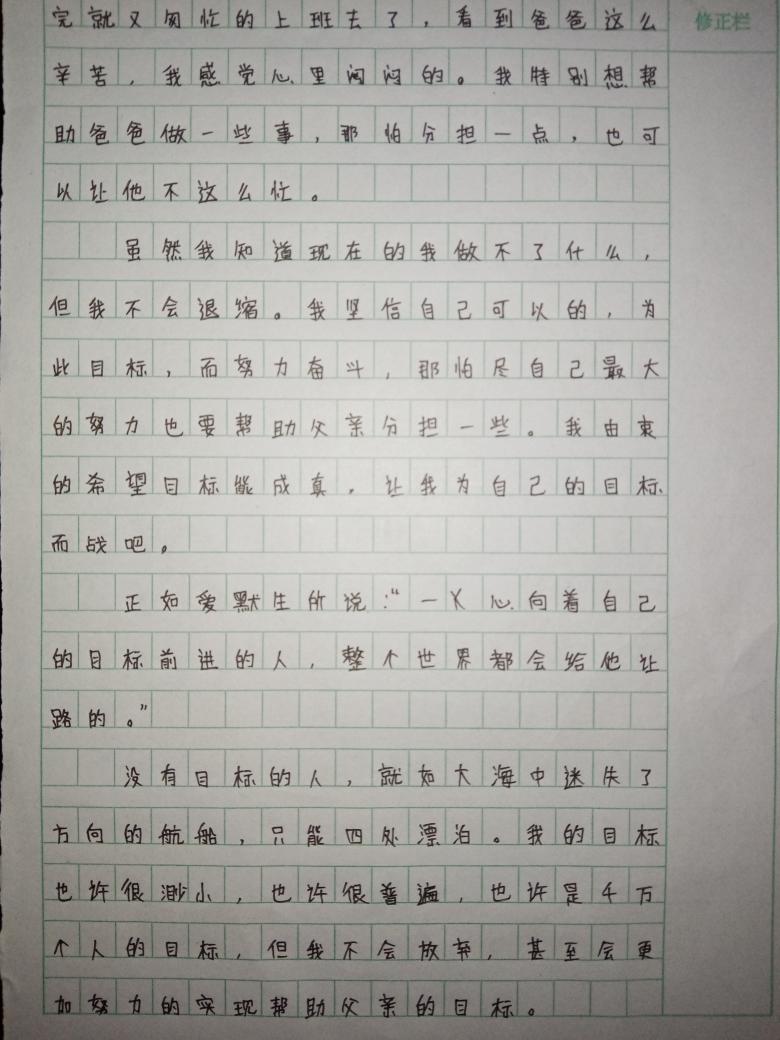 完就又匆忙的上班去了，看到爸爸这么
修正栏
辛苦，我感觉心里闷闷的。我特别想帮
助爸爸做一些事，那怕分担一点，也可
以让他不这么忙。
虽然我知道现在的我做不了什么，
但我不会退缩。我坚信自己可以的，为
此目标，而努力奋斗，那怕尽自己最大
的努力也要帮助父亲分担一些。我由衷
的希望目标能成真，让我为自己的目标
而战吧。
正如爱默生所说：“一心向着自己
的目标前进的人，整个世界都会给他让
路的。”
没有目标的人，就如大海中迷失了
方向的航船，只能四处漂泊。我的目标
也许很渺小，也许很普遍，也许是千万
个人的目标，但我不会放弃，甚至会更
加努力的实现帮助父亲的目标。